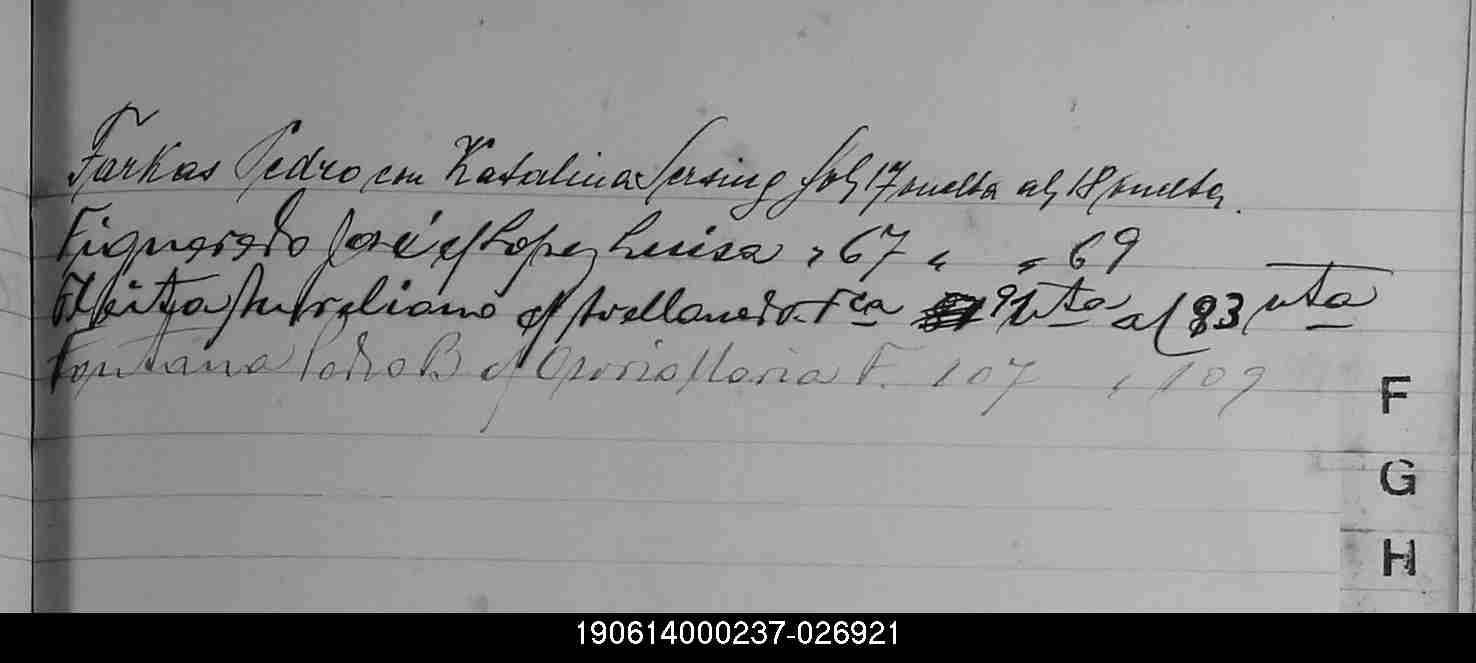 Farkas Pedro con Katalina Sersing fol 17 vuelta al 18 vuelta.
Figueredo José c/ Lopez Luisa " 67 " " 69
Fleita Aureliano c/ Avellaneda Fca 91 vta al 93 vta
Fontana Pedro B c/ Maria F. 107 " 109
F
G
H
190614000237-026921